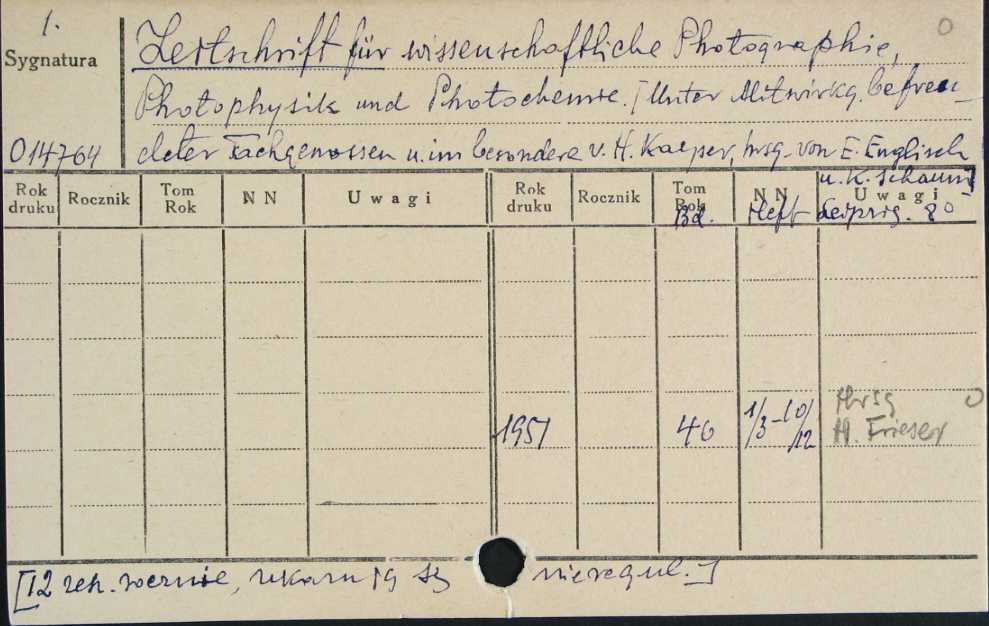 1.
0
Sygnatura
Zeitschrift für wissenschaftliche Photographie,
Photophysik und Photochemie. [Unter Mitwirkg. befreun-
014764 deter Fachgenossen u. im besondere v. H. Kayser, hrsg. von E. Englisch
u. K. Schaum]
Rok druku Rocznik Tom Rok NN Uwagi Rok druku Rocznik Tom Rok NN Uwagi
Bd. Heft Leipzig. 8°
1951 46 1/3-10/12 Hrsg 0
H. Frieser
[12 zesz. rocznie, ukazują się nieregul.]